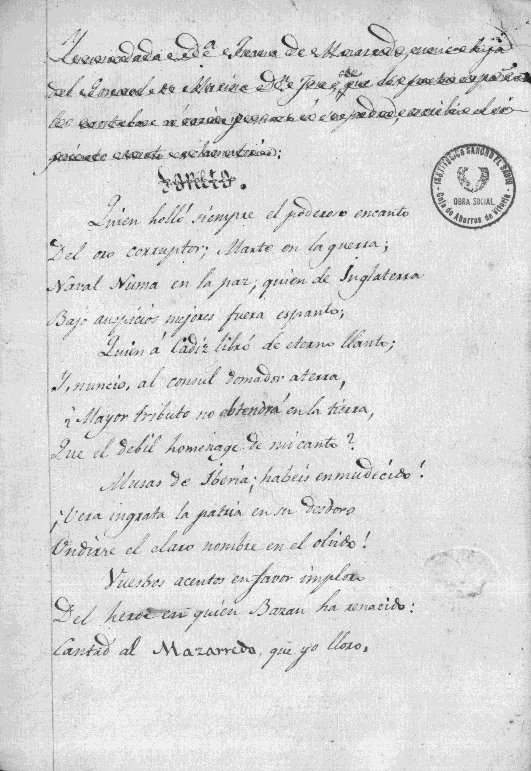 de Mazarredo, única hija
del General de Marina Dn. Jose,
SONETO.
Quien holló siempre el poderoso encanto
Del oro corruptor; Marte en la guerra;
Naval Numa en la paz; quien de Inglaterra
Bajo auspicios mejores fuera espanto;
Quien á Cádiz libró de eterno llanto;
Y, nuncio, al consul domador aterra,
¿Mayor tributo no obtendrá en la tierra,
Que el debil homenage de mi canto?
Musas de Iberia; habeis enmudecido!
¡Vera ingrata la patria en su desdoro
Undirse el claro nombre en el olvido!
Vuestros acentos en favor imploro
Del heroe en quien Bazan ha renacido:
Cantad al Mazarredo, que yo lloro.
INSTITUCION SANCHO EL SABIO
OBRA SOCIAL
Caja de Ahorros de Vitoria